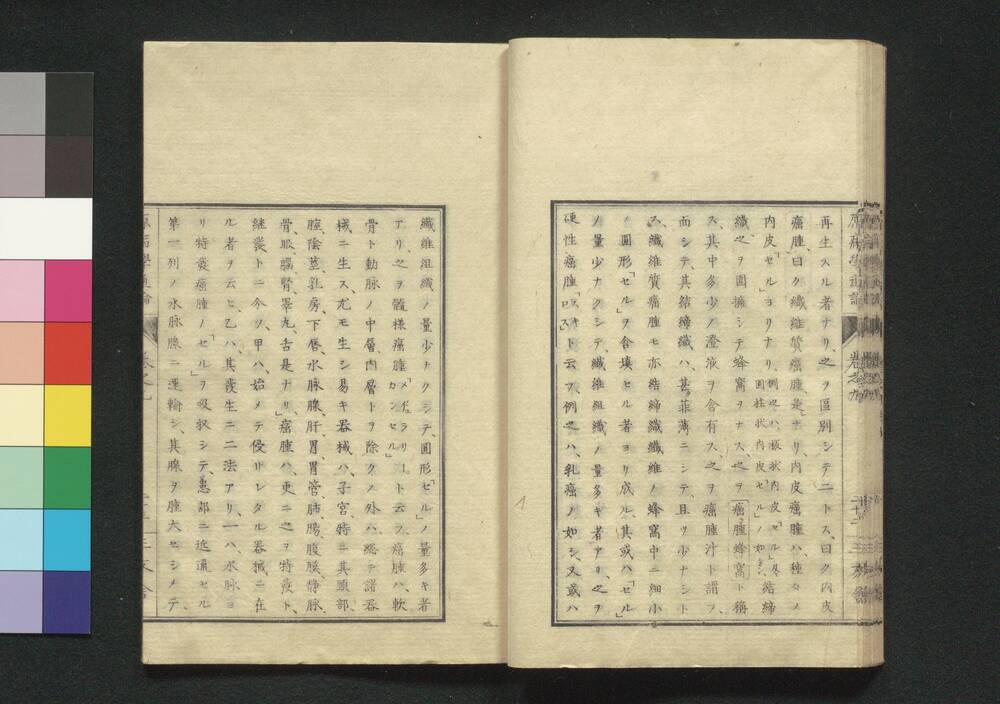 再生スル者ナリ、之ヲ區別シテ二トス、曰ク内皮
癌腫、曰ク纖維質癌腫、是ナリ、内皮癌腫ハ、種々ノ
内皮「セル」ヨリナリ、例之ハ、板狀内皮「セル」及
圓柱狀内皮「セル」ノ如シ、結締
纖之ヲ圍擁シテ蜂窩ヲナス、之ヲ癌腫蜂窩ト稱
ス、其中多少ノ澄液ヲ含有ス、之ヲ癌腫汁ト謂フ、
而シテ、其結締纖ハ、甚菲薄ニシテ、且ツ少ナシト
ス、纖維質癌腫モ亦結締纖纖維ノ蜂窩中ニ細小
ノ圓形「セル」ヲ含填セル者ヨリ成ル、其或ハ「セル」
ノ量少ナクシテ、纖維組織ノ量多キ者アリ、之ヲ
硬性癌腫ト云フ、例之ハ、乳癌ノ如シ、又或ハ
卷之九
纖維組織ノ量少ナクシテ、圓形「セル」ノ量多キ者
アリ、之ヲ髓樣癌腫「メヂュラリーカンセル」ト云フ、癌腫ハ、軟
骨ト動脉ノ中層内層トヲ除クノ外ハ、總テ諸器
械ニ生ス、尤モ生シ易キ器械ハ、子宮特ニ其頸部、
腟、陰莖、乳房、下唇、水脉腺、肝、胃、胃管、肺、腸、腹膜、靜脉、
骨、眼、腦、腎、睪丸、舌是ナリ、癌腫ハ、更ニ之ヲ特發ト、
繼發トニ今ツ、甲ハ、始メテ侵サレタル器械ニ在
ル者ヲ云ヒ、乙ハ、其發生ニ二法アリ、一ハ、水脉ヨ
リ特發癌腫ノ「セル」ヲ吸收シテ、患部ニ近通セル
第一列ノ水脉腺ニ運輸シ、其腺ヲ腫大セシメテ、